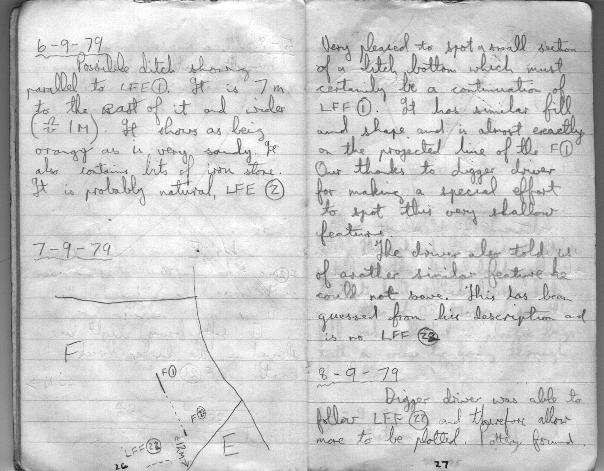 6-9-79
Possible ditch showing
parallel to LFF ①. It is 7m
to the East of it and wider
(± 1M). It shows as being
orangy as is very sandy. It
also contains bits of iron stone.
It is probably natural, LFF ②
7-9-79
F
F①
F②
LFF ㉘
E
26
Very pleased to spot a small section
of a ditch bottom which must
certainly be a continuation of
LFF ①. It has similar fill
and shape and is almost exactly
on the projected line of the F①
Our thanks to digger driver
for making a special effort
to spot this very shallow
feature.
The driver also told us
of another similar feature he
could not save. This has been
guessed from his description and
is no. LFF ㉘
8-9-79
Digger driver was able to
follow LFF and therefore allow
more to be plotted. Pottery found
27